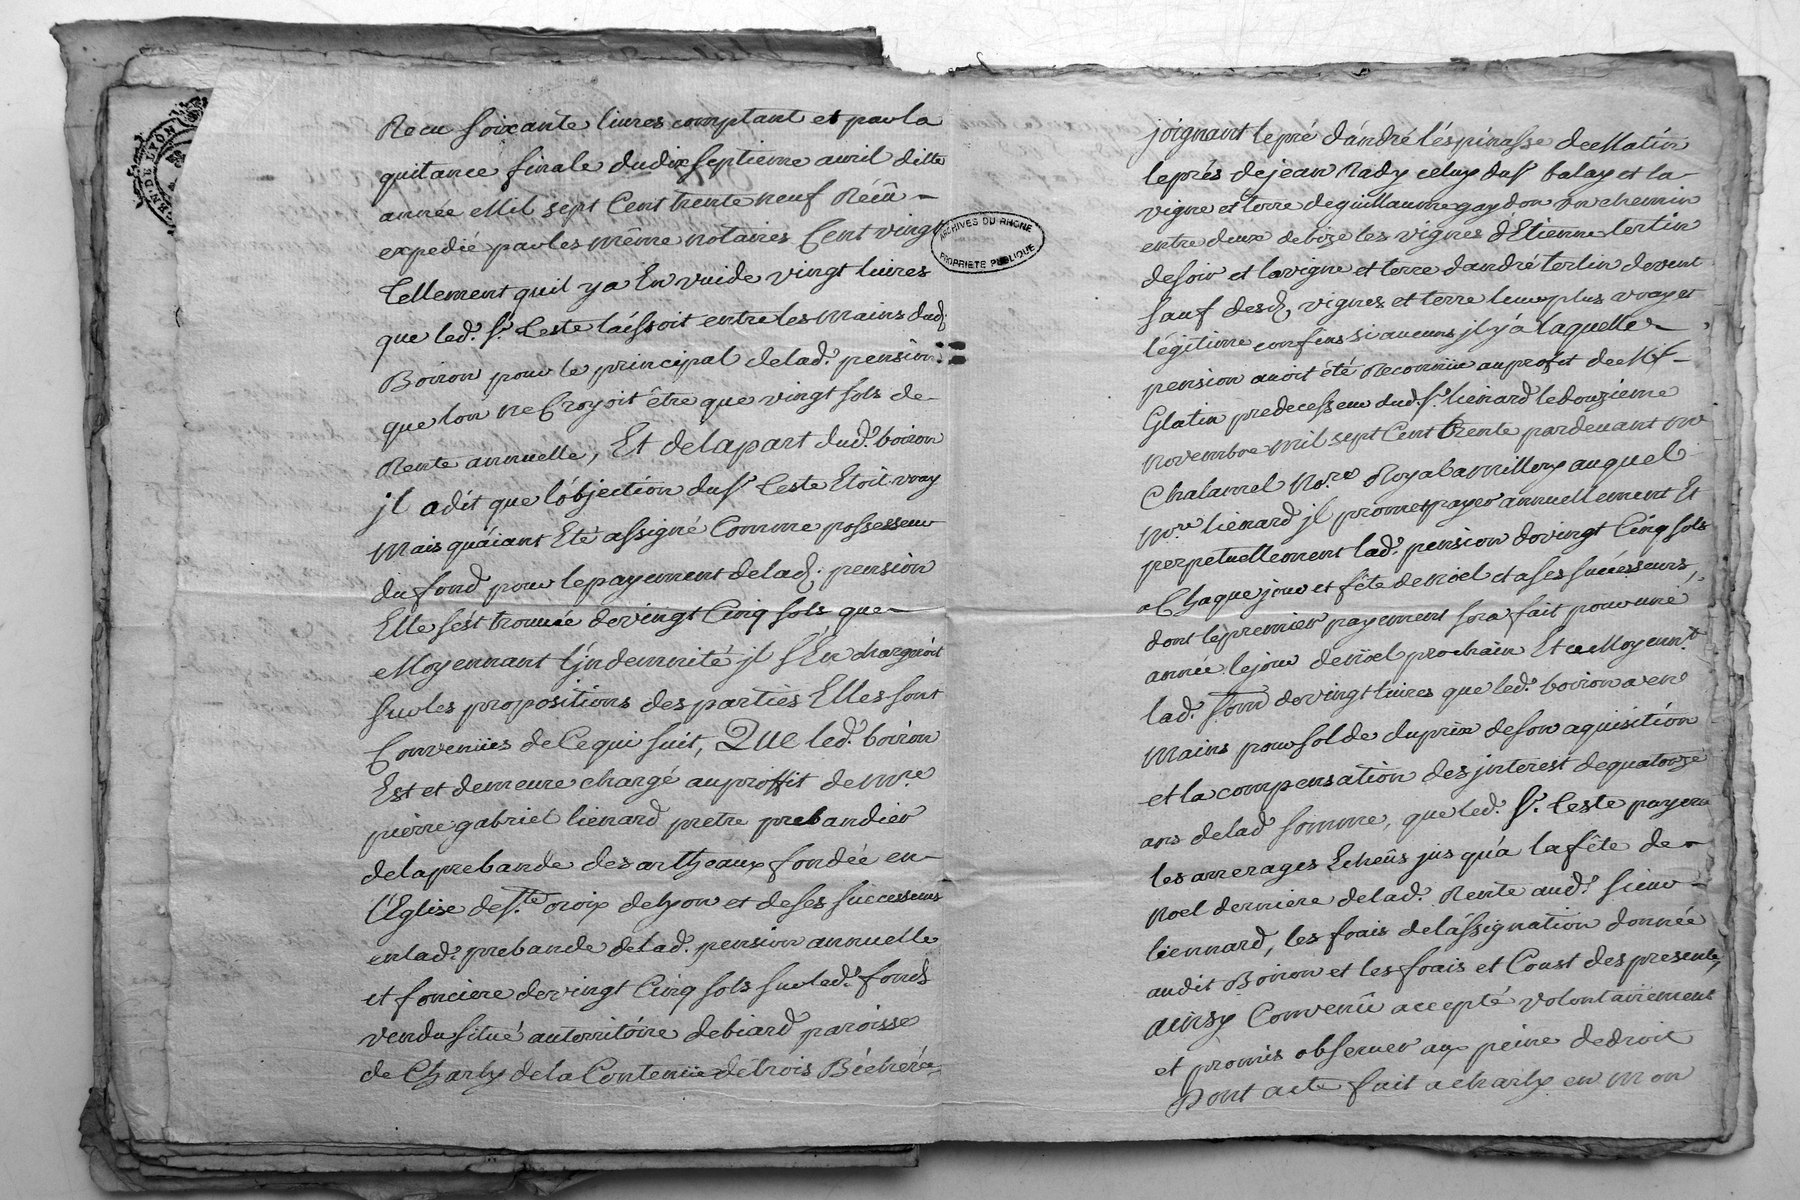 Recu soixante livres comptant et par la
quitance finale du dix septieme avril ditte
année Mil sept Cent trente neuf Récû
expedié par les même notaires Cent vingt
tellement quil y a En vuide vingt livres
que led. Sr. Ceste laissoit entre les mains dud.
Boiron pour le principal de lad. pension
que lon ne Croyoit être que vingt sols de
Rente annuelle, Et de la part dud. boiron
jl a dit que l'objection du Sr Ceste Etoit vray
Mais quáiant Eté assigné Comme possesseur
du fond pour le payement de lad. pension
Elle sést trouvée de vingt Cinq sols que
Moyennant l'jndemnité jl s'En chargeroit
sur les propositions des parties Elles sont
Convenües de Ce qui suit, Que led. boiron
Est et demeure chargé au proffit de mre
pierre gabriel lienard pretre prebandier
de la prebande des artheaux fondée en
l'Eglise de Ste. croix de lyon et de ses successeurs
en lad. prebande de lad. pension annuelle
et fonciere de vingt Cinq sols sur led. fond
vendu situé au territoire de biard paroisse
de Charly de la Contenüe de trois Bicherée
ARCHIVES DU RHONE
PROPRIETE PUBLIQUE
GEN. DE LYON
joignant le pré d'ándré l'éspinasse de Matin
le prés de jean Rady celuy du Sr balay et la
vigne et terre de guillaume gaydon un chemin
entre deux de bize les vignes d'Etienne tertin
de soir et la vigne et terre d'andré tertin de vent
sauf desd. vignes et terre leurs plus vray et
légitime confins si aucuns jl y á laquelle
pension avoit été Reconnüe au profit de Mr
Glatin predecesseur dud. Sr. lienard le douzieme
Novembre mil sept Cent trente pardevant me
Chalamel No.re Royal a millery auquel
mre lienard jl promet payer annuellement Et
perpetuellement lad. pension de vingt Cinq sols
a Chaque jour et fête de noel et a ses successeurs,
dont le premier payement sera fait pour une
année le jour de noel prochain Et ce Moyennt
lad. som de vingt livres que led. boiron a en
Mains pour solde du prix de son aquisition
et la compensation des jnterest de quatorze
ans de lad somme, que led. Sr. Ceste payera
les arrerages Echeûs jusqu'à la fête de
Noel derniere de lad. Rente aud. sieur
liennard, les frais de l'ássignation donnée
audit Boiron et les frais et Coust des presente,
ainsy Convenû accepté volontairement
et promis observer aux peine de droit
Dont acte fait a charly en mon